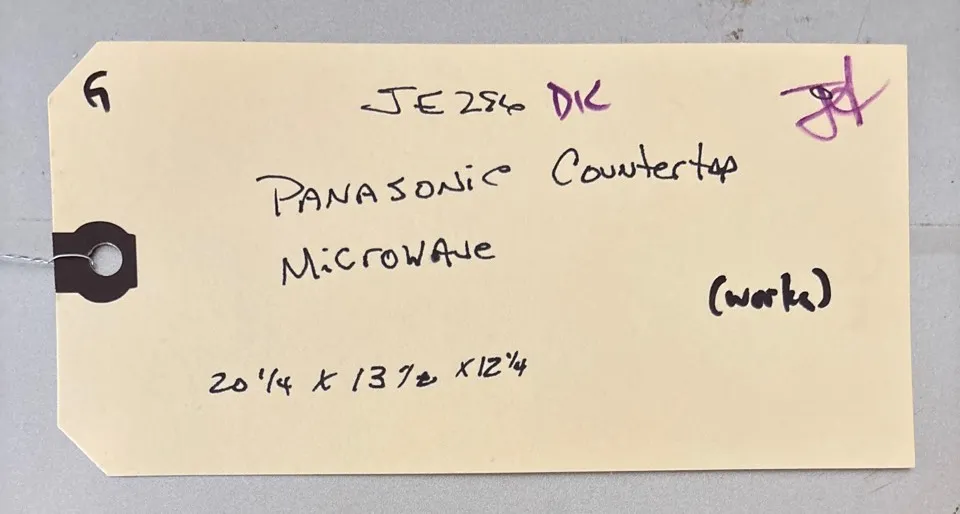 G
JE256 DK
PANASONIC Countertop
MICROWAVE
(works)
20 1/4 X 13 1/2 X 12 1/4